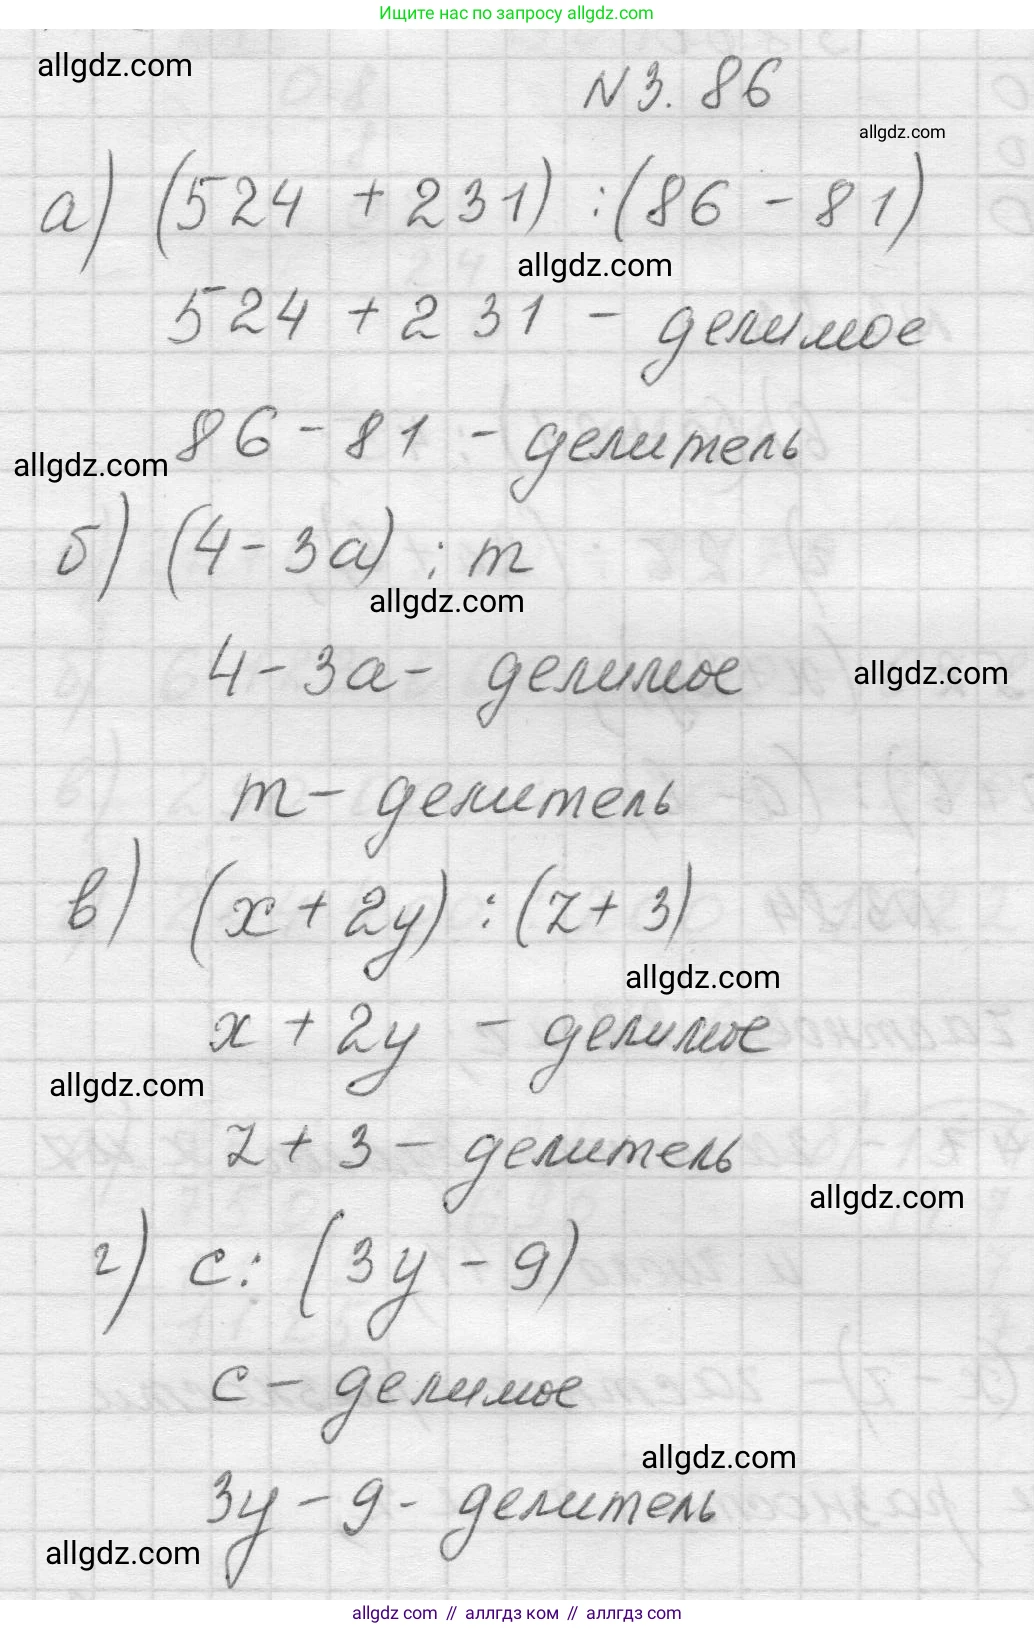 Ищите нас по запросу allgdz.com
allgdz.com
N 3. 86
allgdz.com
а) (524 + 231) : (86 - 81)
allgdz.com
524 + 231 - делимое
86 - 81 - делитель
allgdz.com
б) (4 - 3а) : m
allgdz.com
4 - 3а - делимое
allgdz.com
m - делитель
в) (x + 2y) : (z + 3)
allgdz.com
x + 2y - делимое
allgdz.com
z + 3 - делитель
allgdz.com
г) c : (3y - 9)
c - делимое
allgdz.com
3y - 9 - делитель
allgdz.com
allgdz.com // аллгдз ком // аллгдз com